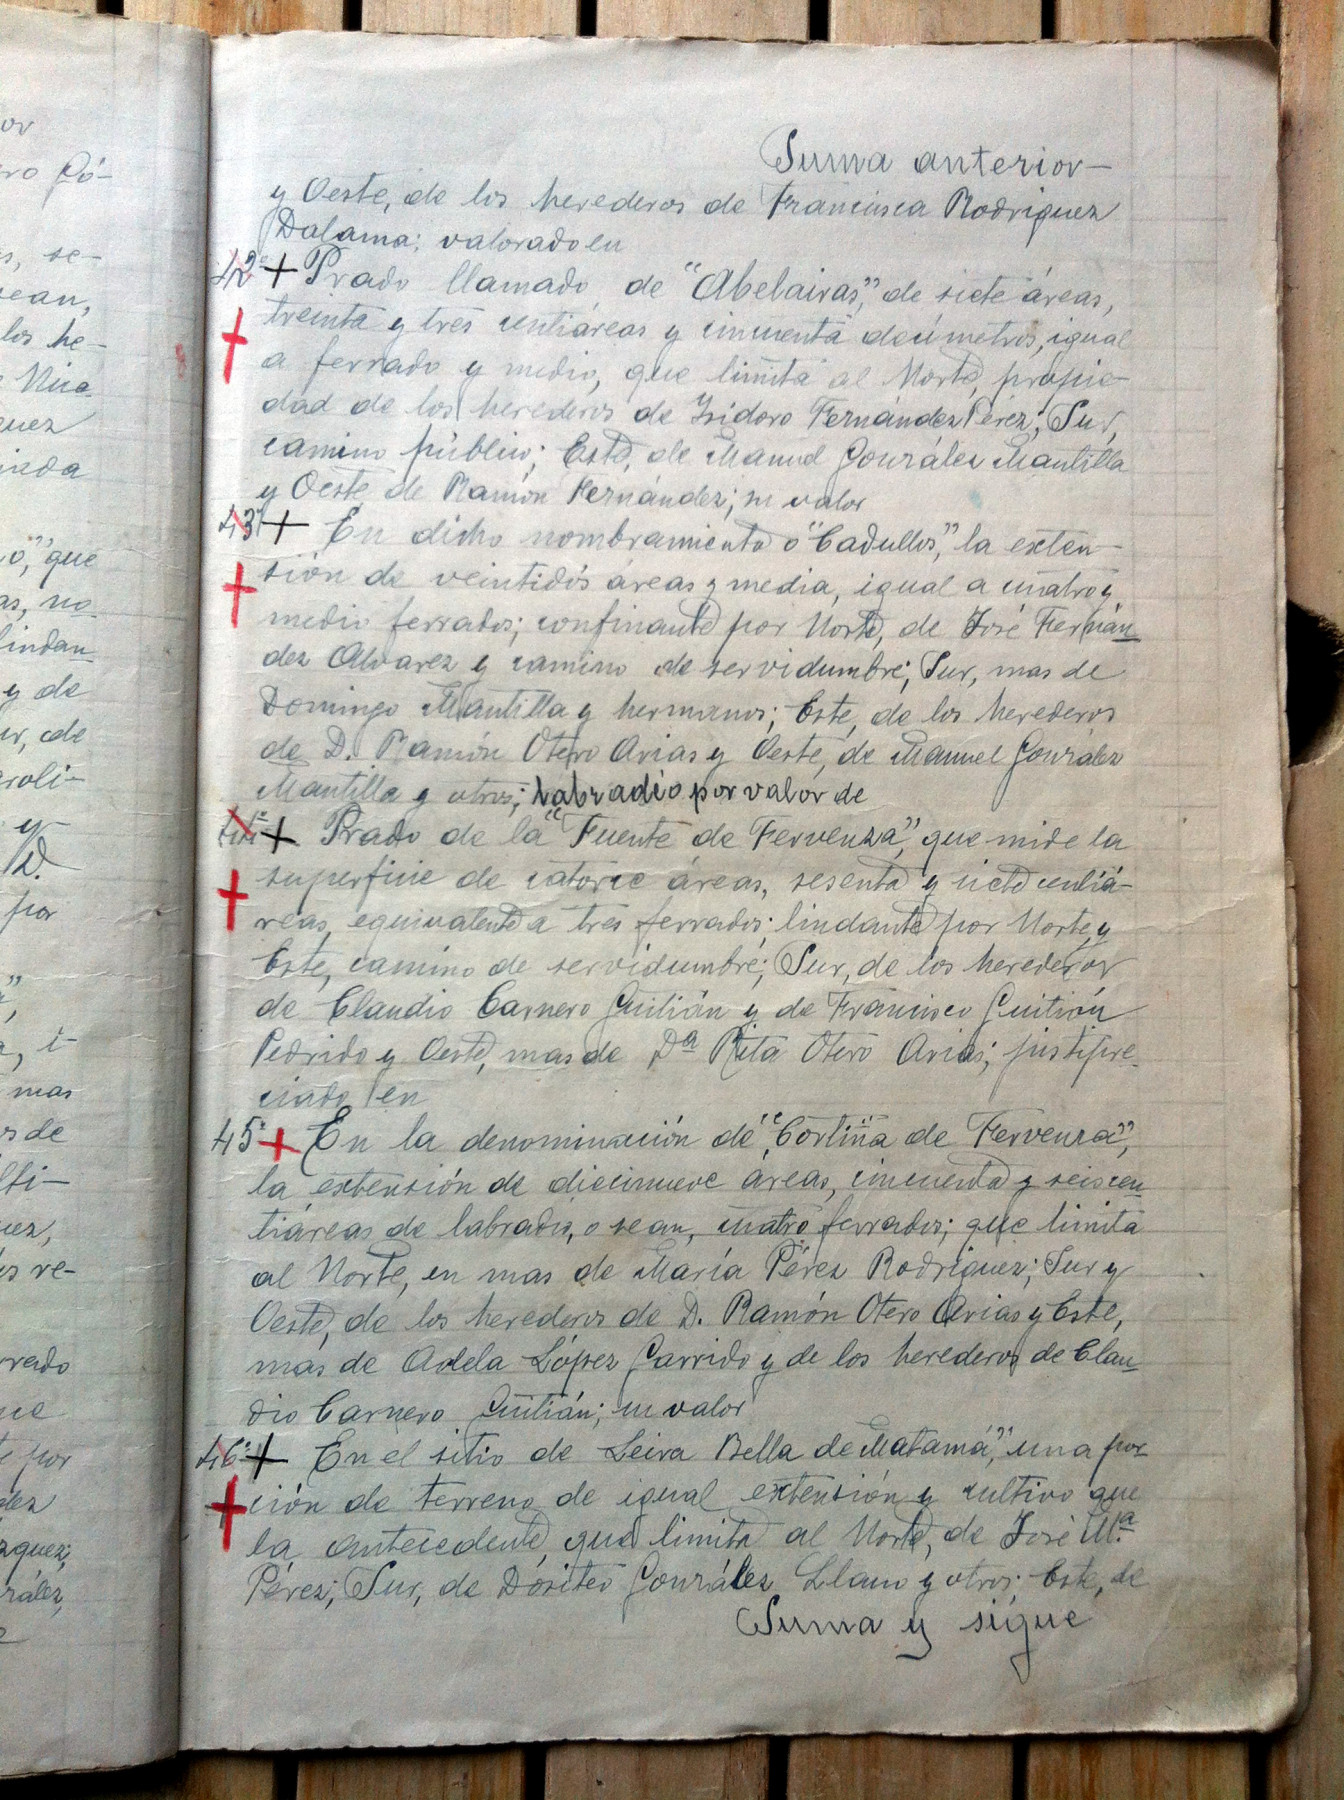 Suma anterior—
y Oeste, de los herederos de Francisca Rodríguez
Dalama; valorado en
42ª + Prado llamado de "Abelairas", de siete áreas,
treinta y tres centiáreas y cincuenta decímetros, igual
a ferrado y medio, que limita al Norte, propie-
dad de los herederos de Isidoro Fernández Pérez; Sur,
camino público; Este, de Manuel González Mantilla
y Oeste de Ramón Fernández; su valor
43ª + En dicho nombramiento o "Cadullos", la exten-
sión de veintidós áreas y media, igual a cuatro y
medio ferrados; confinante por Norte, de José Fernán-
dez Alvarez y camino de servidumbre; Sur, mas de
Domingo Mantilla y hermanos; Este, de los herederos
de D. Ramón Otero Arias y Oeste, de Manuel González
Mantilla y otros; labradio por valor de
44ª + Prado de la "Fuente de Fervenza", que mide la
superficie de catorce áreas, sesenta y siete centiá-
reas, equivalente a tres ferrados; lindante por Norte y
Este, camino de servidumbre; Sur, de los herederos
de Claudio Carnero Guitián y de Francisco Guitián
Pedrido y Oeste, mas de Dª Rita Otero Arias; justipre-
ciado en
45ª + En la denominación de "Cortiña de Fervenza",
la extensión de diecinueve áreas, cincuenta y seis cen-
tiáreas de labradío, o sean, cuatro ferrados; que limita
al Norte, en mas de María Pérez Rodríguez; Sur y
Oeste, de los herederos de D. Ramón Otero Arias y Este,
mas de Adela López Garrido y de los herederos de Clau-
dio Carnero Guitián; su valor
46ª + En el sitio de Leira Bella de Matamá", una por-
ción de terreno de igual extensión y cultivo que
la antecedente, que limita al Norte, de José Mª
Pérez; Sur, de Dositeo González Llano y otros; Este, de
Suma y sigue